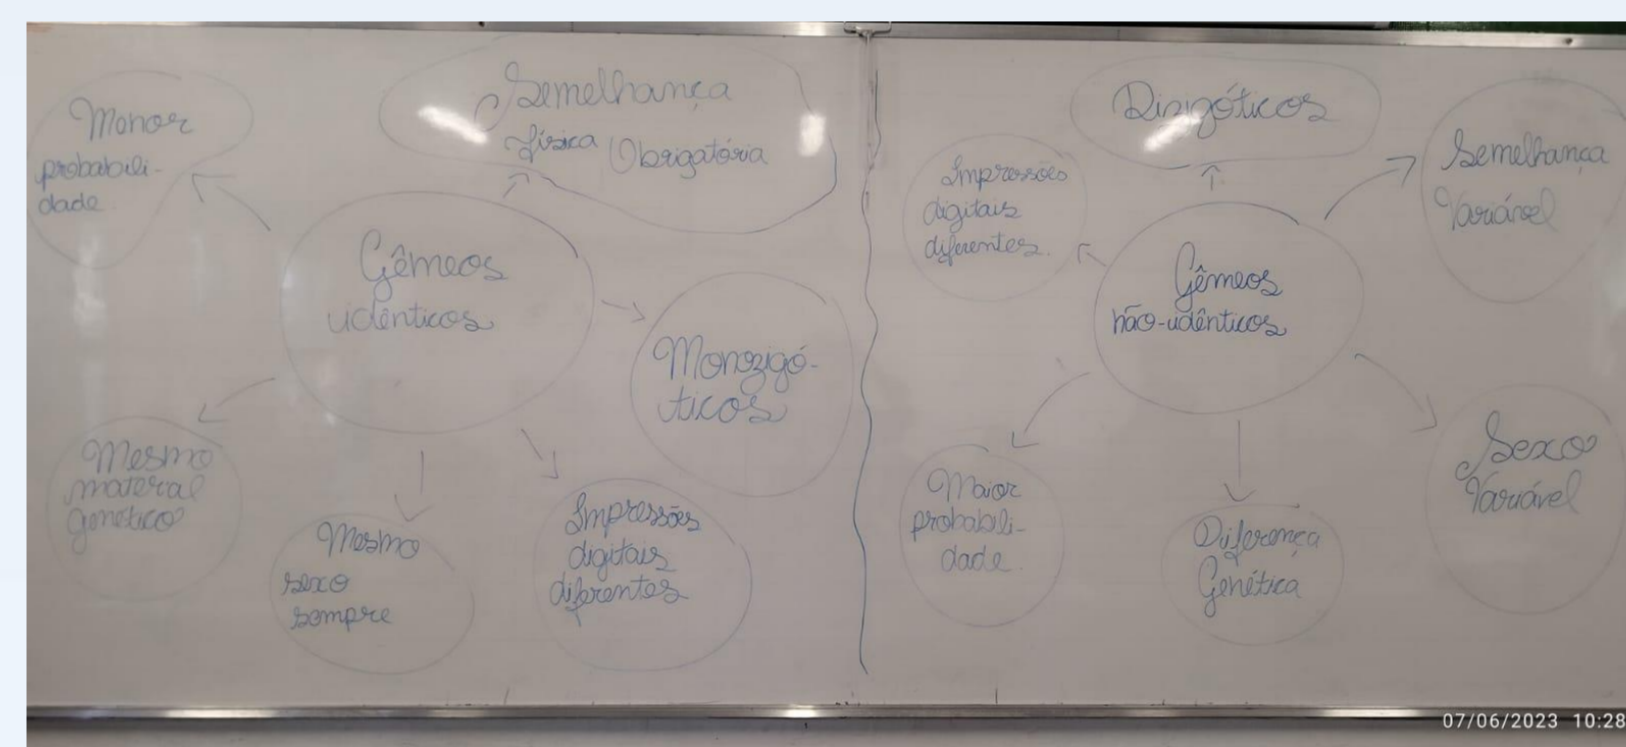 Menor
probabili-
dade.
Semelhança
física Obrigatória
Gêmeos
idênticos
Monozigó-
ticos
Mesmo
material
genético
Mesmo
sexo
sempre
Impressões
digitais
diferentes
Dizigóticos
Impressões
digitais
diferentes.
Semelhança
Variável
Gêmeos
não-idênticos
Maior
probabili-
dade.
Diferença
Genética
Sexo
Variável
07/06/2023 10:28